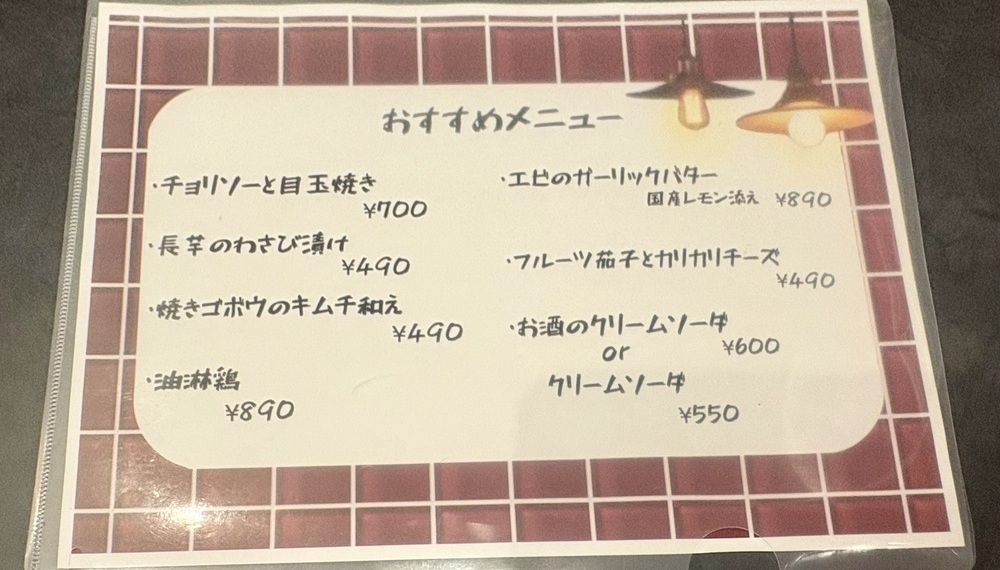 おすすめメニュー
・チョリソーと目玉焼き
¥700
・長芋のわさび漬け
¥490
・焼きゴボウのキムチ和え
¥490
・油淋鶏
¥890
・エビのガーリックバター
国産レモン添え ¥890
・フルーツ茄子とカリカリチーズ
¥490
・お酒のクリームソーダ
or ¥600
クリームソーダ
¥550